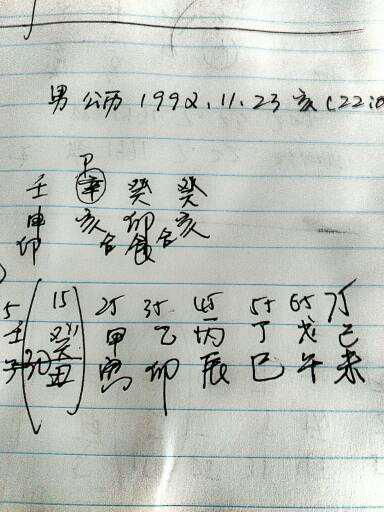 男 公历 1992.11.23 亥 (22:0
P
壬 辛 癸 癸
申 亥 卯 亥
印 合 食 合
5 15 25 35 45 55 65 75
壬 癸 甲 乙 丙 丁 戊 己
子 丑 寅 卯 辰 巳 午 未